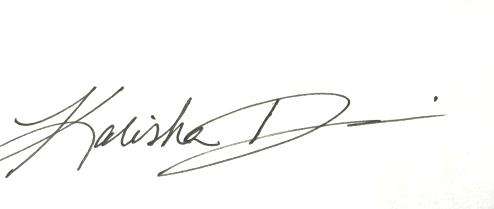 Kalisha D